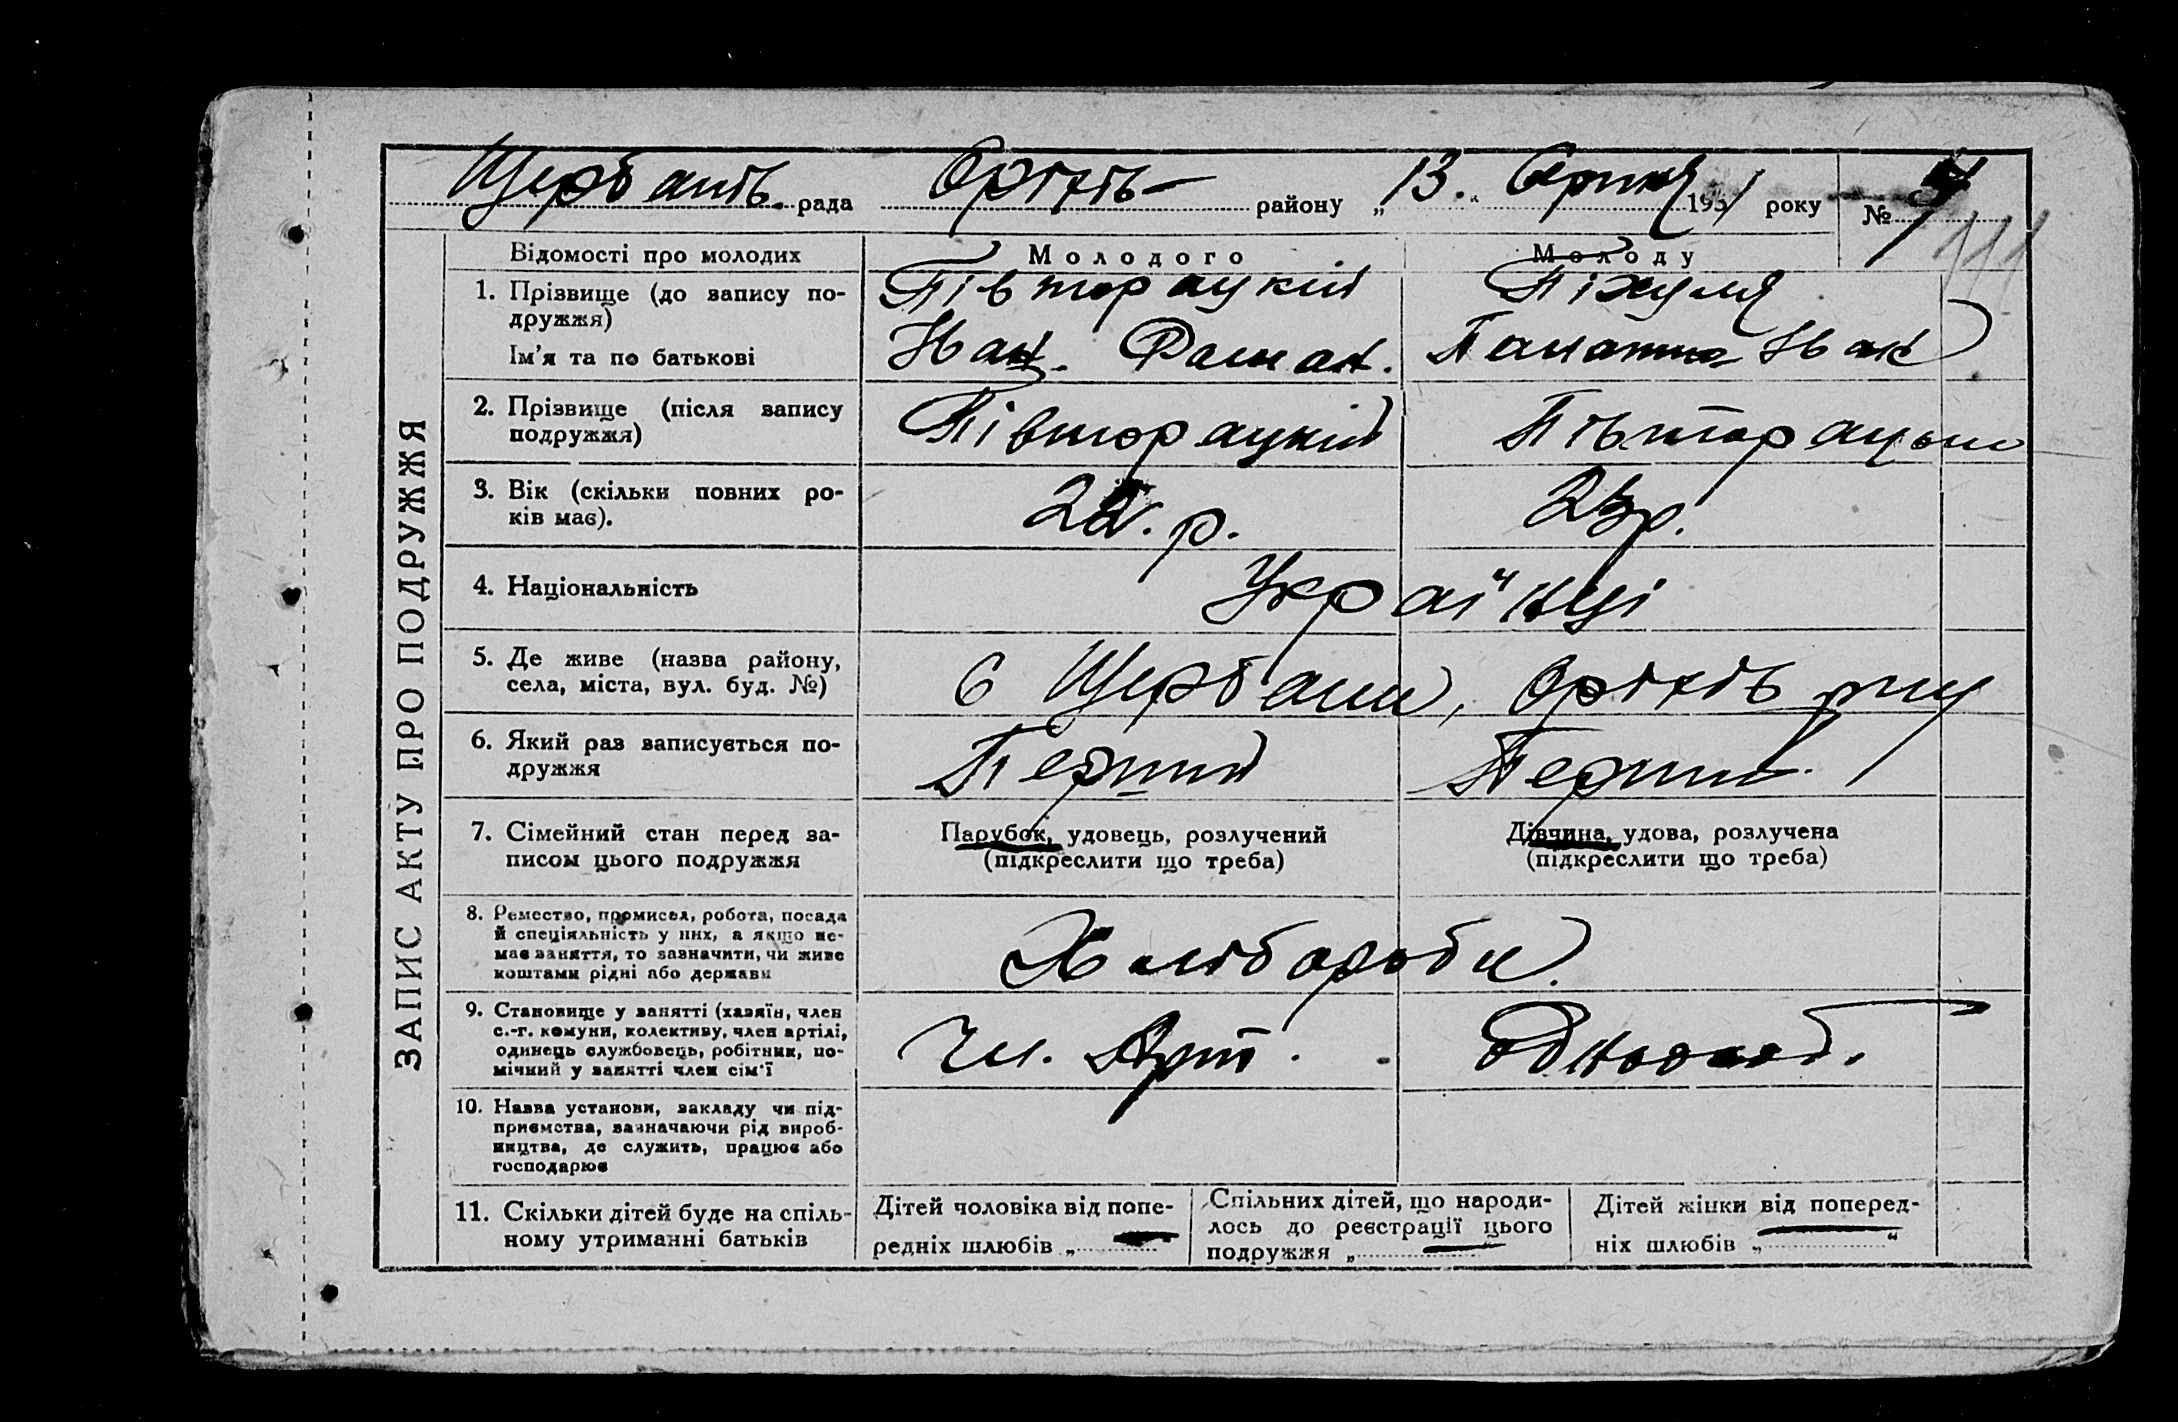 Щербанів. рада Оріхів— району „13." Серпня 1931 року №
ЗАПИС АКТУ ПРО ПОДРУЖЖЯ
Відомості про молодих
Молодого
Молоду
1. Прізвище (до запису по-
дружжя)
Ім'я та по батькові
Півторацкий
Іван. Роман.
Піжуля
Іван
2. Прізвище (після запису
подружжя)
Півторацкий
3. Вік (скільки повних ро-
ків має).
22. р.
23р.
4. Національність
Украінці
5. Де живе (назва району,
села, міста, вул. буд. №)
С Щербани, Оріхів р-ну
6. Який раз записується по-
дружжя
Перший
Перший
7. Сімейний стан перед за-
писом цього подружжя
Парубок, удовець, розлучений
(підкреслити що треба)
Дівчина, удова, розлучена
(підкреслити що треба)
8. Ремество, промисел, робота, посада
й спеціяльність у них, а якщо не-
має заняття, то зазначити, чи живе
коштами рідні або держави
Хлібороби
9. Становище у занятті (хазяїн, член
с.-г. комуни, колективу, член артілі,
одинець службовець, робітник, по-
мічний у занятті член сім'ї
Чл. Арт.
10. Назва установи, закладу чи під-
приємства, зазначаючи рід вироб-
ництва, де служить, працює або
господарює
11. Скільки дітей буде на спіль-
ному утриманні батьків
Дітей чоловіка від попе-
редніх шлюбів „ — "
Спільних дітей, що народи-
лось до реєстрації цього
подружжя „ —
Дітей жінки від поперед-
ніх шлюбів „ — "